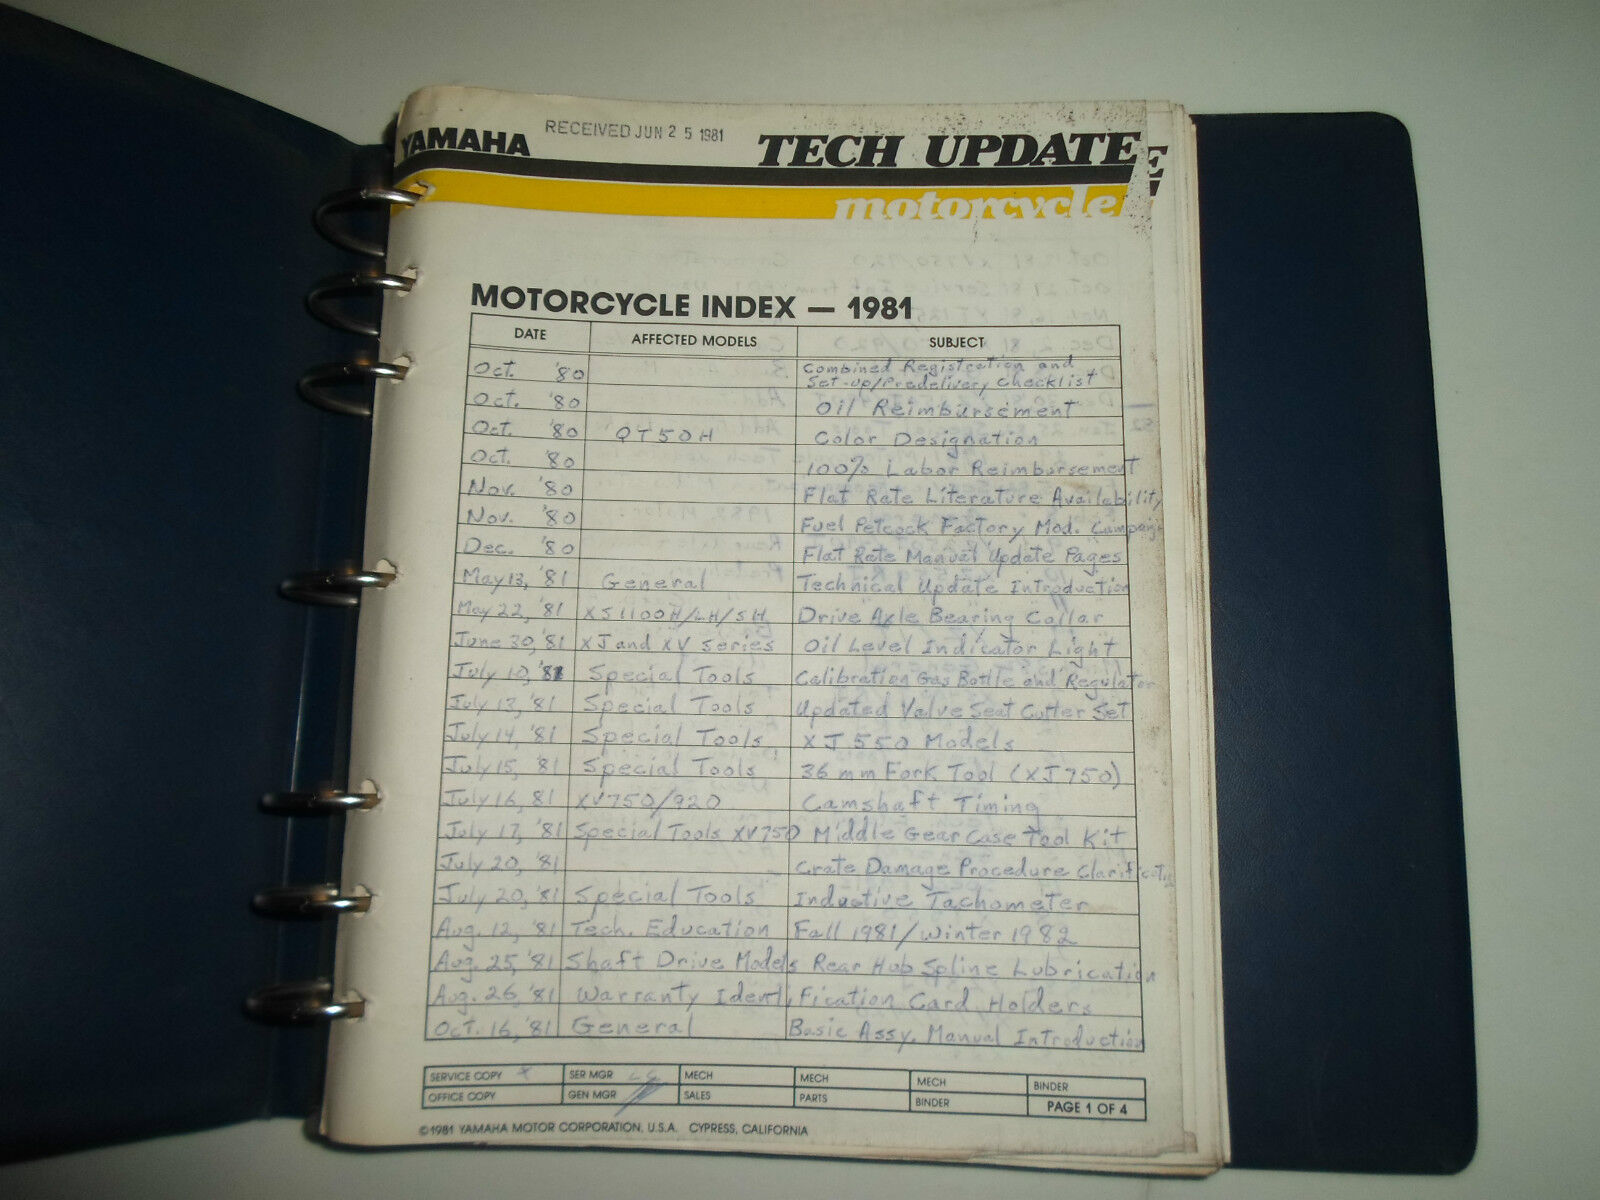 YAMAHA RECEIVED JUN 25 1981 TECH UPDATE E
motorcycle
MOTORCYCLE INDEX — 1981
DATE AFFECTED MODELS SUBJECT
Oct. '80 Combined Registration and
Set-up/Predelivery Checklist
Oct. '80 Oil Reimbursement
Oct. '80 QT50H Color Designation
Oct. '80 100% Labor Reimbursement
Nov. '80 Flat Rate Literature Availability
Nov. '80 Fuel Petcock Factory Mod. Campaign
Dec. '80 Flat Rate Manual Update Pages
May 13, '81 General Technical Update Introduction
May 22, '81 XS1100H/LH/SH Drive Axle Bearing Collar
June 30, '81 XJ and XV series Oil Level Indicator Light
July 10, '81 Special Tools Calibration Gas Bottle and Regulator
July 13, '81 Special Tools Updated Valve Seat Cutter Set
July 14, '81 Special Tools XJ550 Models
July 15, '81 Special Tools 36 mm Fork Tool (XJ750)
July 16, '81 XV750/920 Camshaft Timing
July 17, '81 Special Tools XV750 Middle Gear Case Tool Kit
July 20, '81 Crate Damage Procedure Clarification
July 20, '81 Special Tools Inductive Tachometer
Aug. 12, '81 Tech. Education Fall 1981/Winter 1982
Aug. 25, '81 Shaft Drive Models Rear Hub Spline Lubrication
Aug. 26, '81 Warranty Identification Card Holders
Oct. 16, '81 General Basic Assy. Manual Introduction
SERVICE COPY X SER MGR MECH MECH MECH BINDER
OFFICE COPY GEN MGR SALES PARTS BINDER PAGE 1 OF 4
©1981 YAMAHA MOTOR CORPORATION, U.S.A. CYPRESS, CALIFORNIA